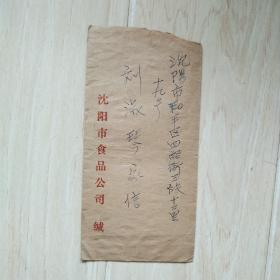 沈阳市和平区四经街三段十三里
十九号
刘淑琴 信
沈阳市食品公司 缄